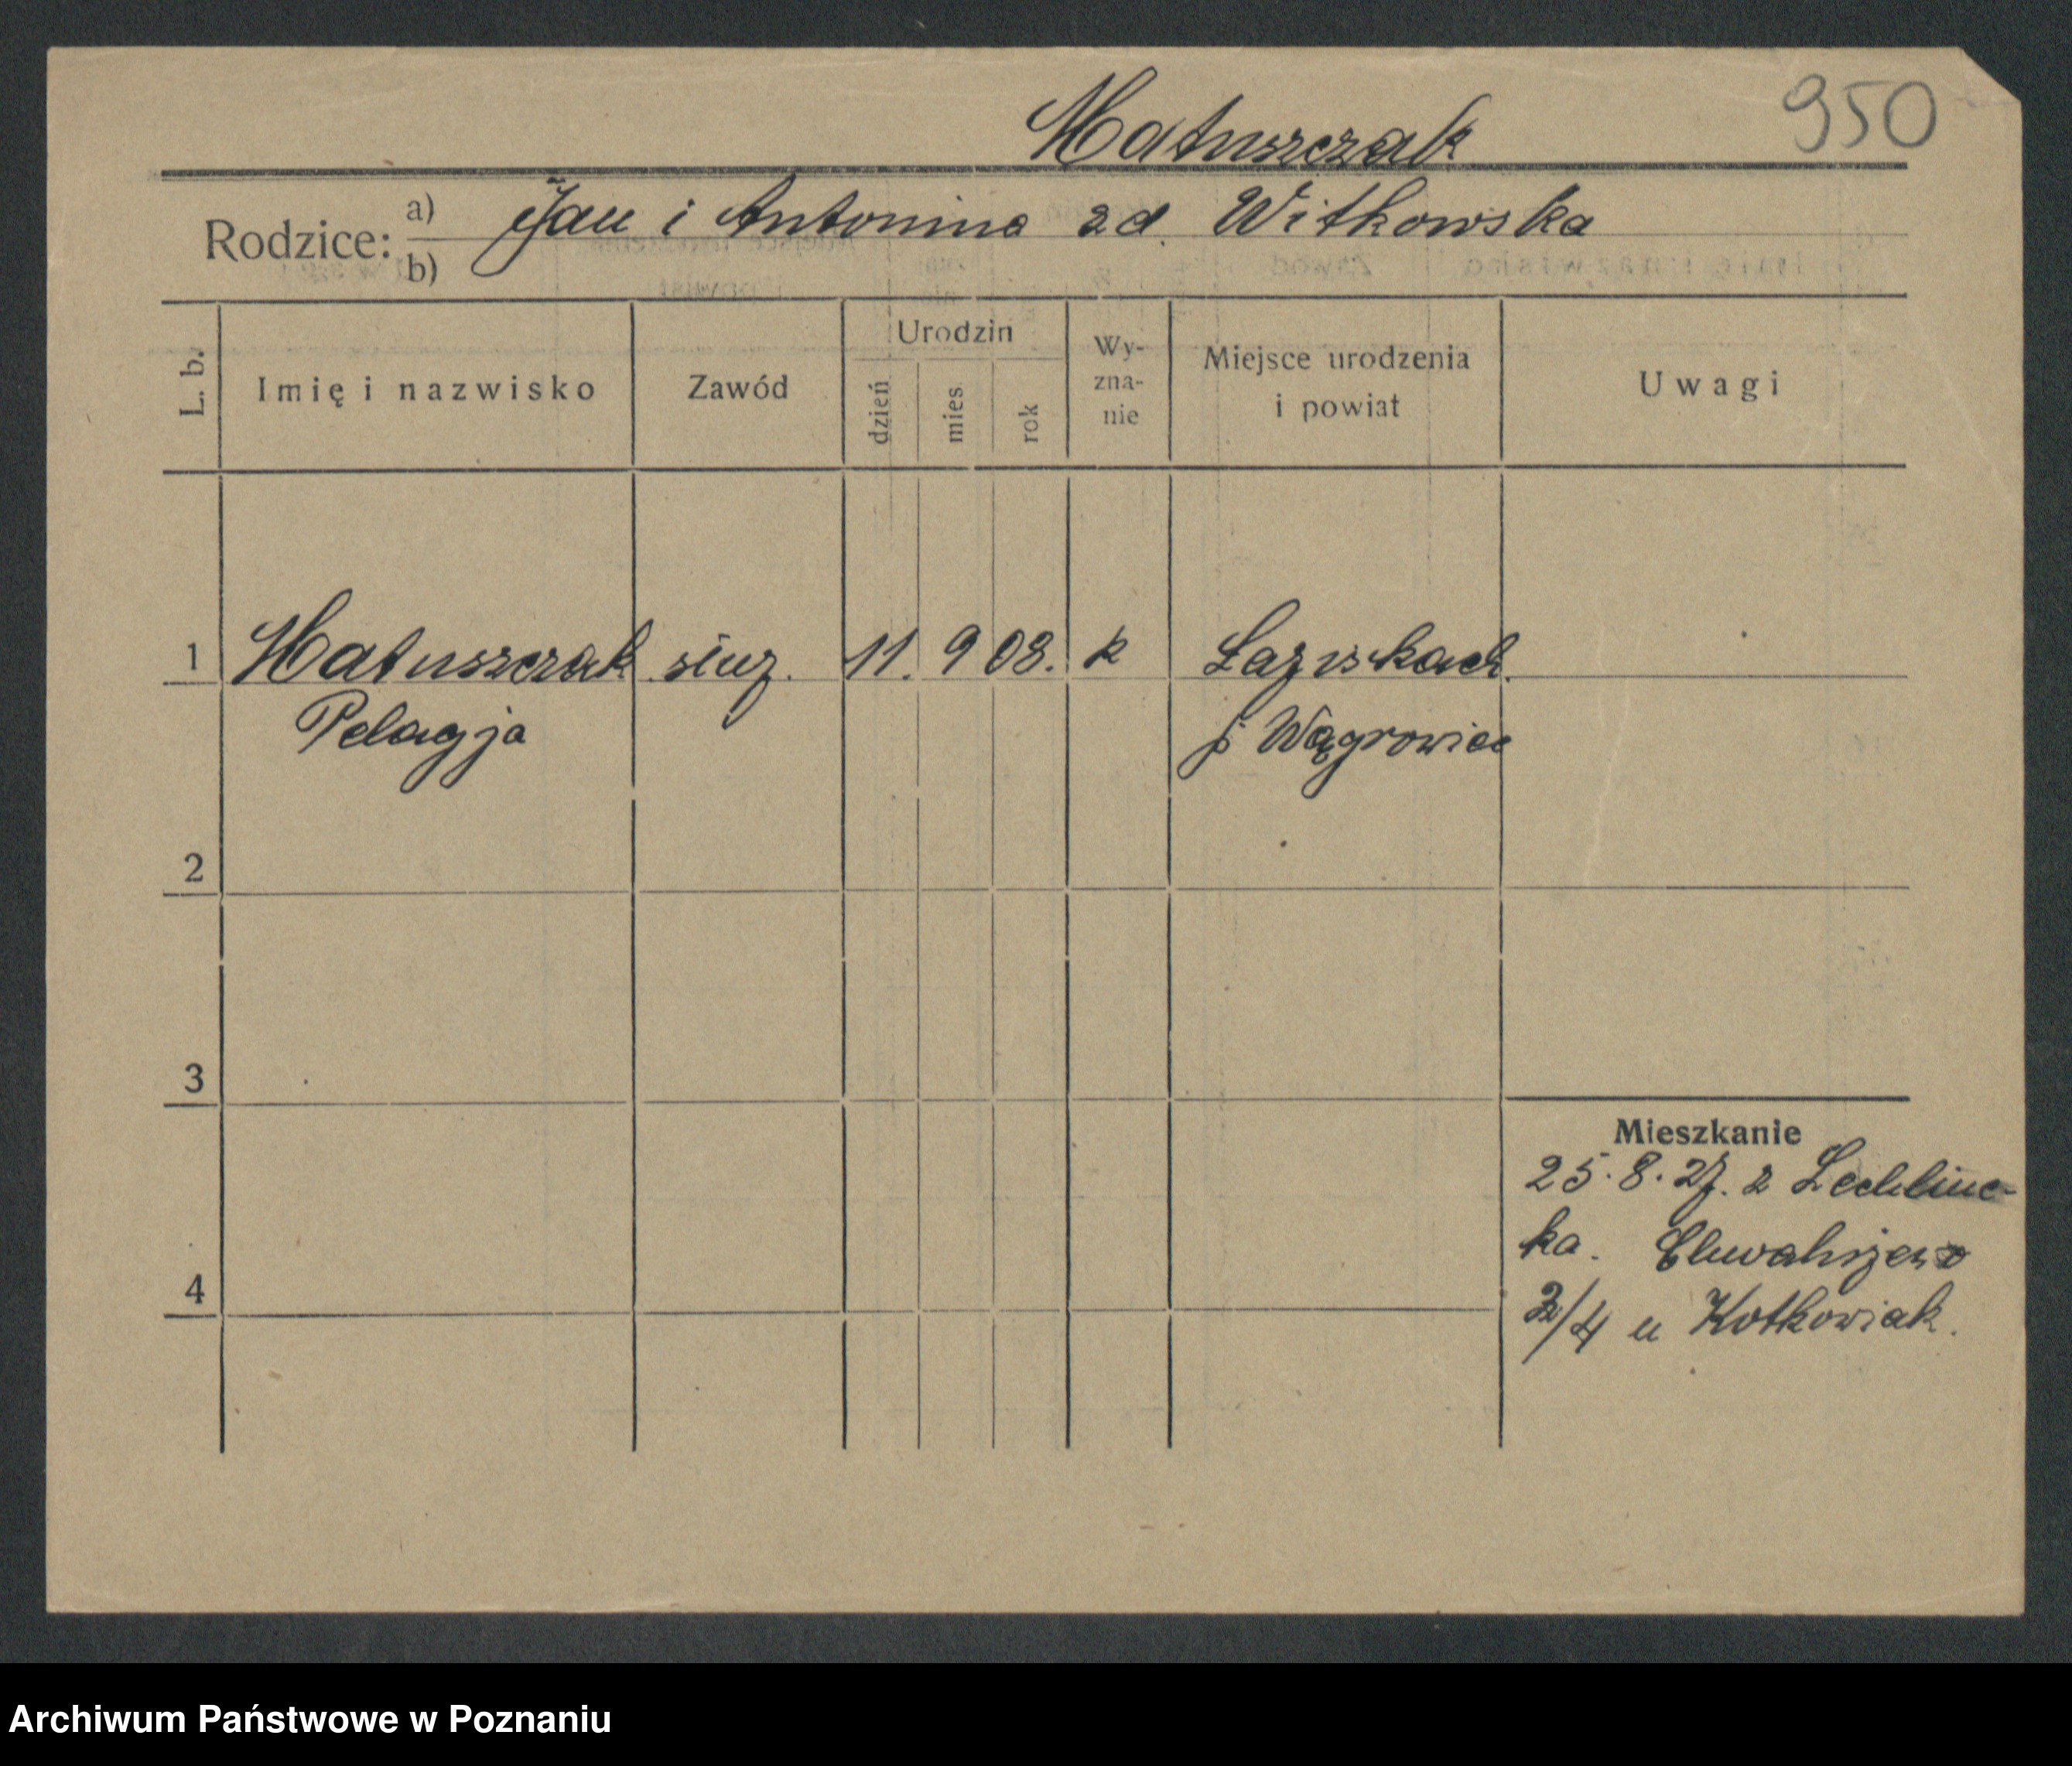 950
Matuszczak
Rodzice: a) Jan i Antonina zd. Witkowska
b)
L. b.
Imię i nazwisko
Zawód
Urodzin
dzień
mies
rok
Wy-
zna-
nie
Miejsce urodzenia
i powiat
Uwagi
1 Matuszczak służ. 11. 9 08. k Laziskach.
Pelagja p Wągrowiec
2
3
4
Mieszkanie
25.8.27. z Lechlinc-
ka.
3/4 u Kotkowiak.
Archiwum Państwowe w Poznaniu